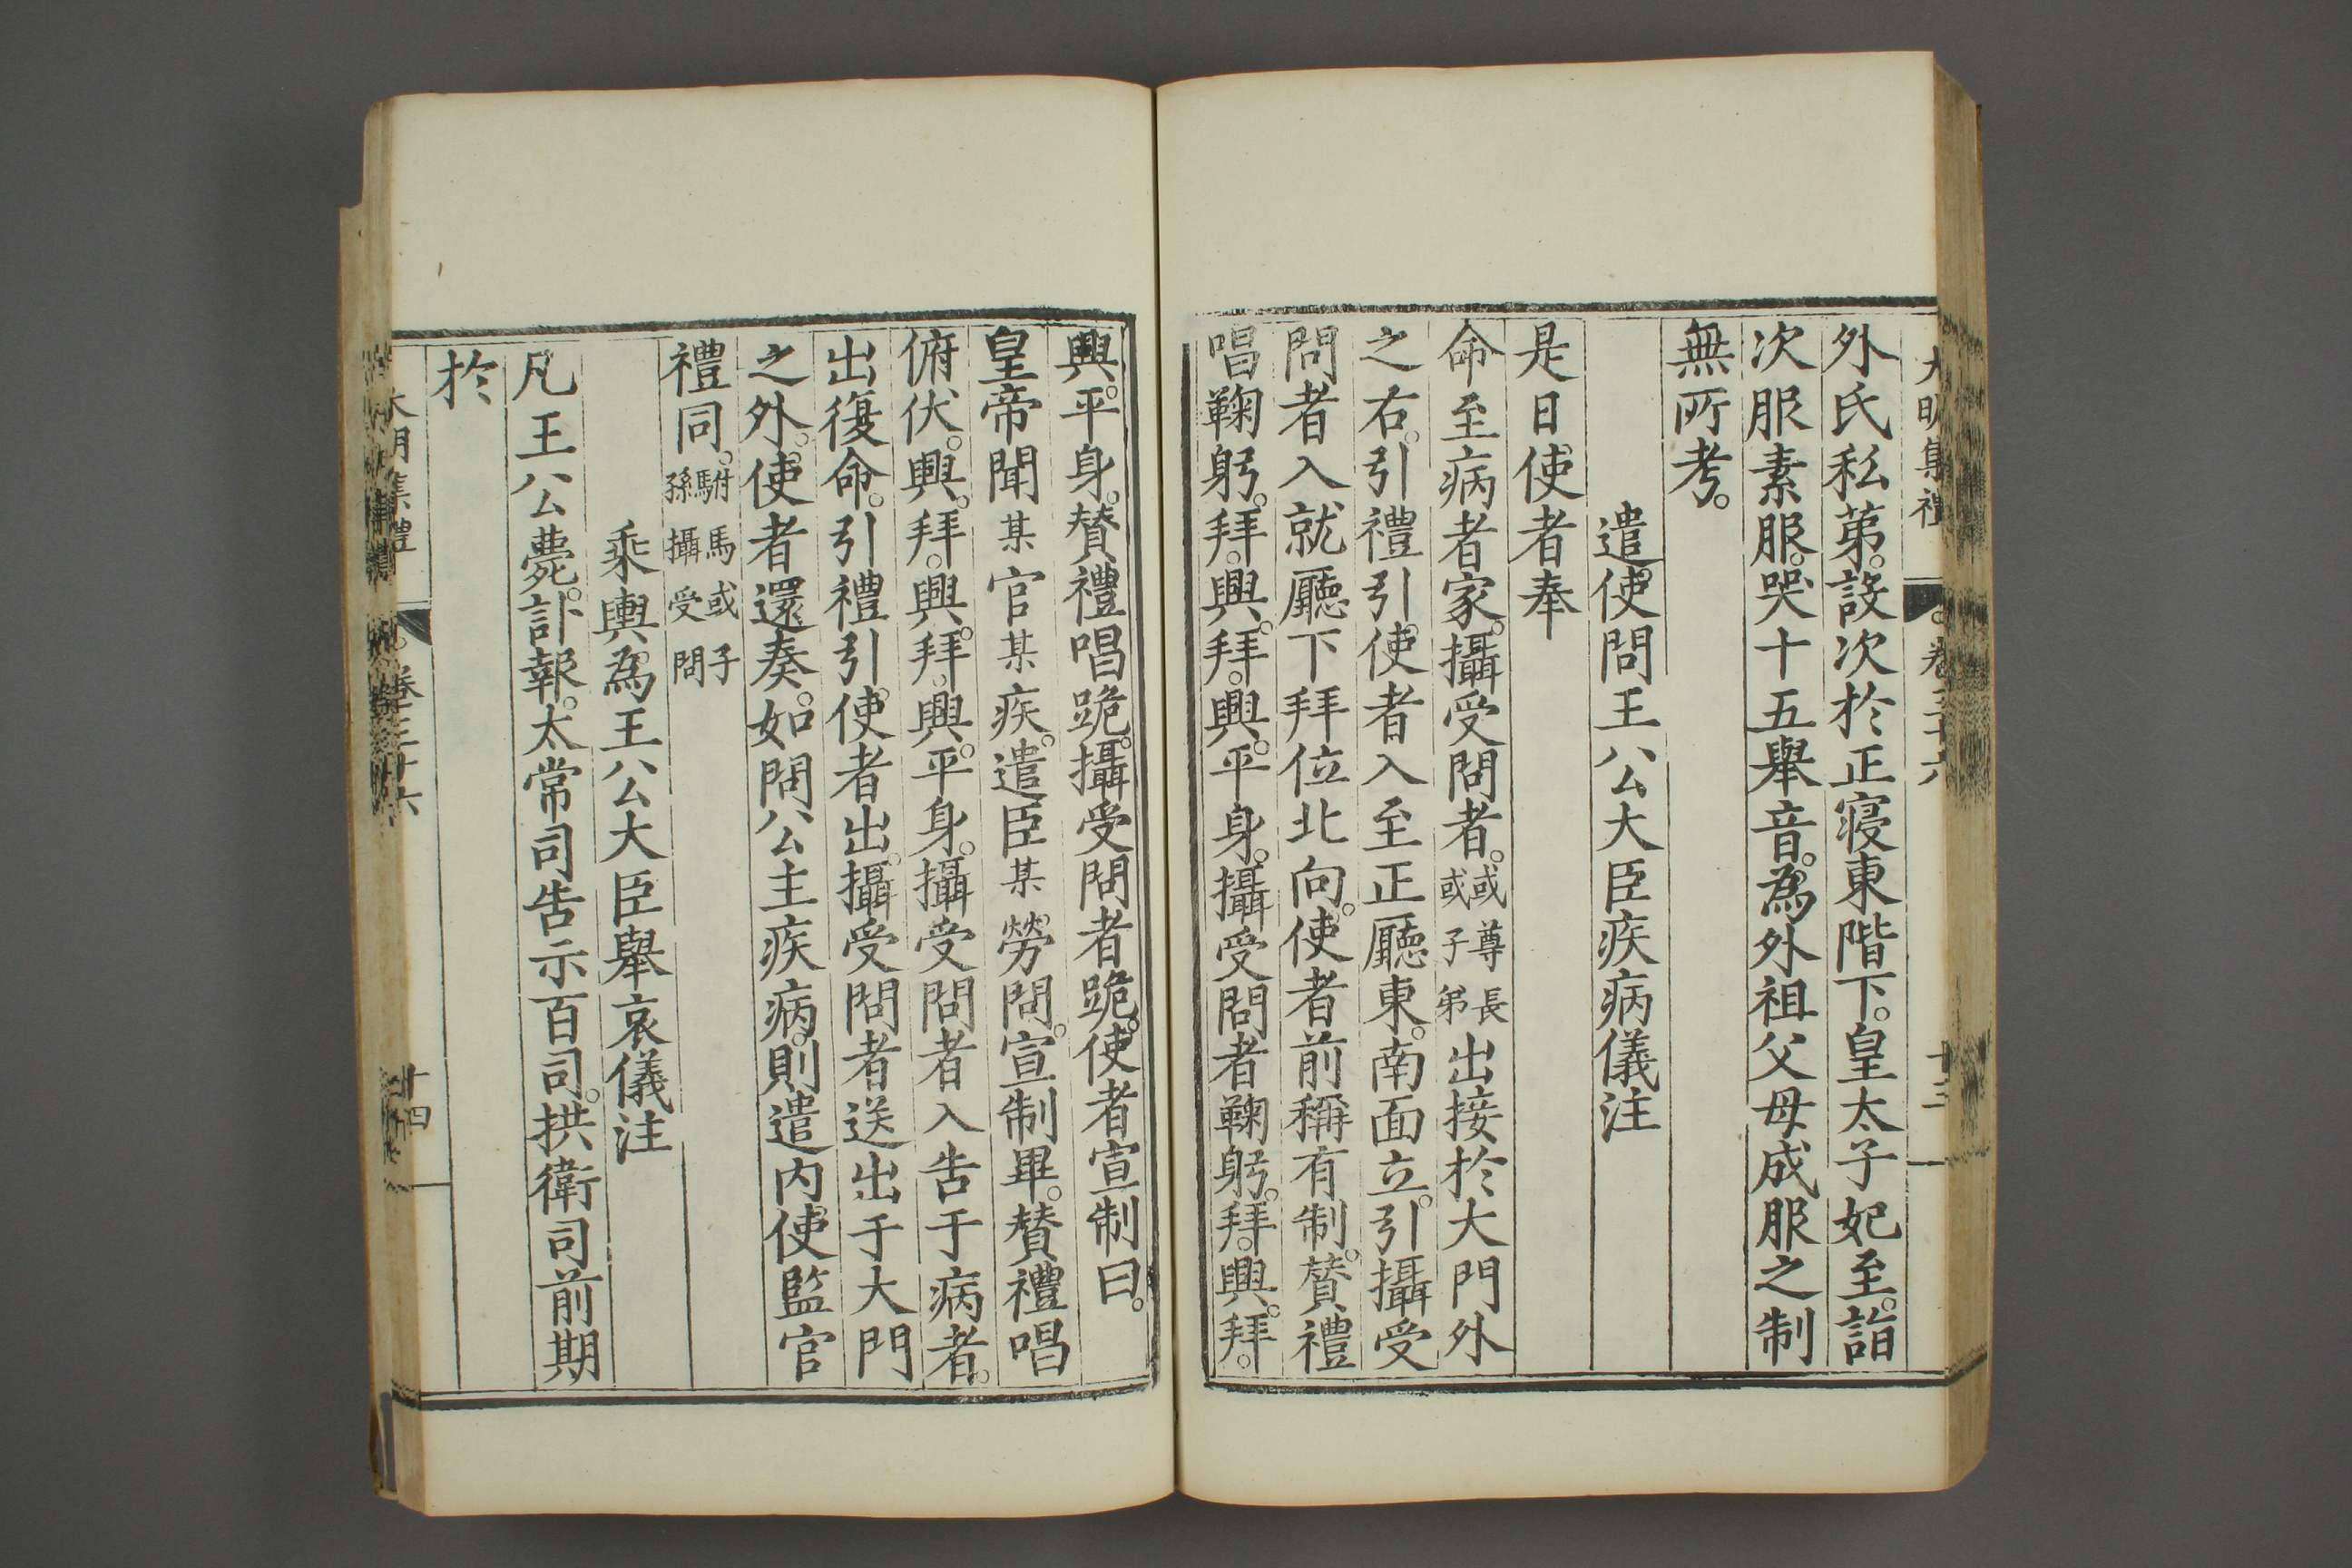 大明集禮 卷三十六 十三
外氏私第。設次於正寢東階下。皇太子妃至。詣
次服素服。哭十五舉音。為外祖父母成服之制
無所考。
遣使問王公大臣疾病儀注
是日。使者奉
命至病者家。攝受問者。或尊長或子弟出接於大門外
之右。引禮引使者入至正廳東。南面立。引攝受
問者入就廳下拜位北向。使者前稱有制。贊禮
唱鞠躬。拜。興。拜。興。平身。攝受問者鞠躬。拜。興。拜。
興。平身。贊禮唱跪。攝受問者跪。使者宣制曰。
皇帝聞某官某疾。遣臣某勞問。宣制畢。贊禮唱
俯伏。興。拜。興。拜。興。平身。攝受問者入告于病者。
出復命。引禮引使者出。攝受問者送出于大門
之外。使者還奏。如問公主疾病。則遣內使監官
禮同。駙馬或子孫攝受問
乘輿為王公大臣舉哀儀注
凡王公薨。訃報。太常司告示百司。拱衛司前期
於
大明集禮 卷三十六 十四